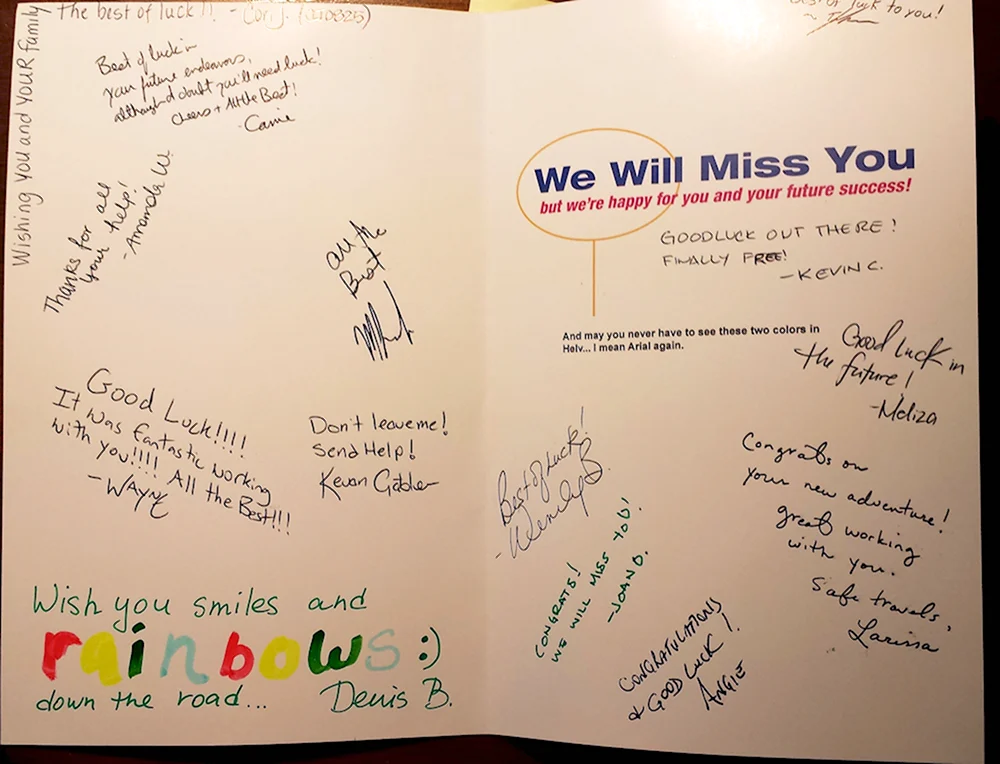 Wishing you and your family
The best of luck!! - Cori J. (040825)
Best of luck in
your future endeavors,
although I doubt you'll need luck!
Cheers + All the Best!
- Carrie
Thanks for all
your help!
- Amanda W.
All the
Best
Good Luck!!!!
It was fantastic working
with you!!!! All the Best!!!
- WAYNE
Don't leave me!
Send Help!
Kevan
Wish you smiles and
rainbows :)
down the road... Denis B.
Best of luck to you!
We Will Miss You
but we're happy for you and your future success!
GOODLUCK OUT THERE!
FINALLY FREE!
- KEVIN C.
And may you never have to see these two colors in
Helv... I mean Arial again.
Good Luck in
the future!
- Meliza
Best of Luck!
- Wendy B
Congrats on
your new adventure!
great working
with you.
Safe travels,
Larissa
CONGRATS!
WE WILL MISS YOU!
- JOAN D.
CONGRATULATIONS
& GOOD LUCK!
ANGIE